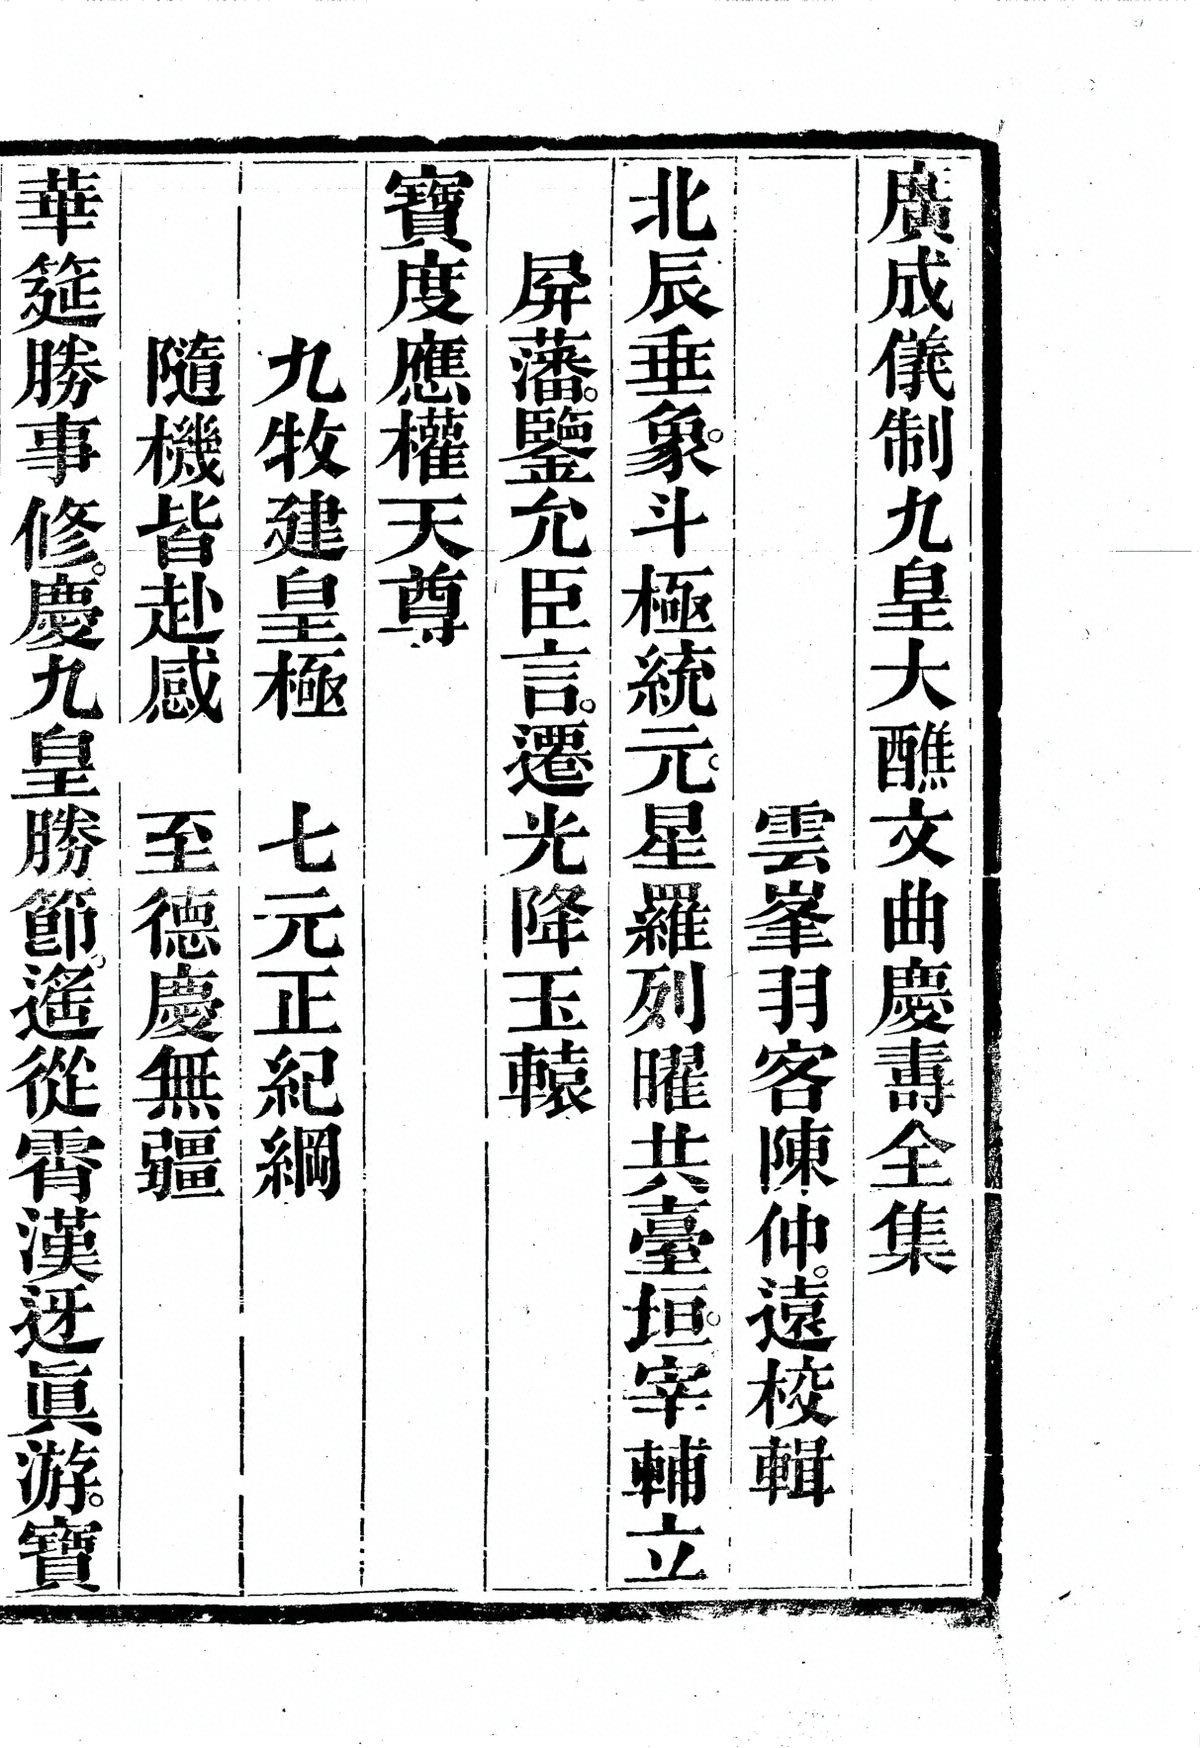 廣成儀制九皇大醮文曲慶壽全集
雲峯羽客陳仲。遠校輯
北辰垂象。斗極統元。星羅列曜共臺垣。宰輔立
屏藩。鑒允臣言。遷光降玉轅
寶度應權天尊
九牧建皇極　七元正紀綱
隨機皆赴感　至德慶無疆
華筵勝事修。慶九皇勝節。遙從霄漢迓眞游。寶